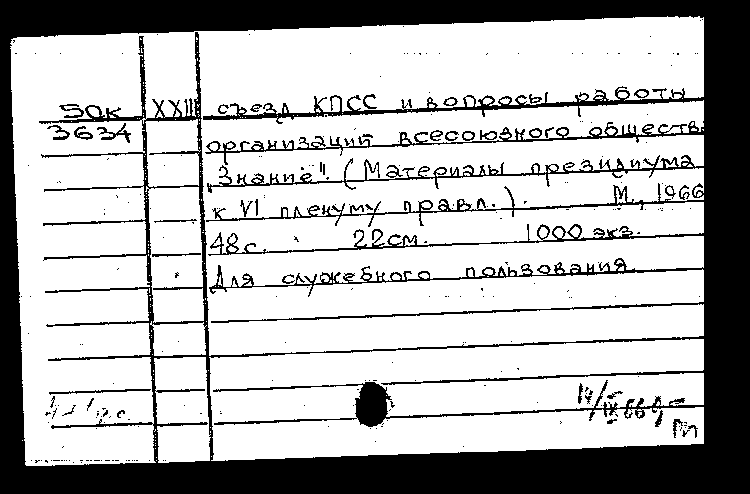 50к XXIII съезд КПСС и вопросы работы
3634 организаций всесоюзного обществ
„Знание". (Материалы президиума
к VI пленуму правл.). М., 1966
48с. 22см. 1000 экз.
Для служебного пользования.
19/IX 66 г.